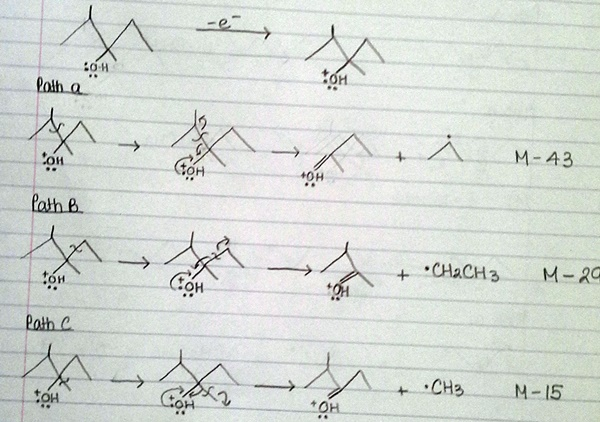 -e⁻
:O-H
+OH
Path a
+OH
+OH
+OH
+
M-43
Path B
+OH
+OH
+OH
+ •CH2CH3 M-29
Path C
+OH
+OH
+OH
+ •CH3 M-15